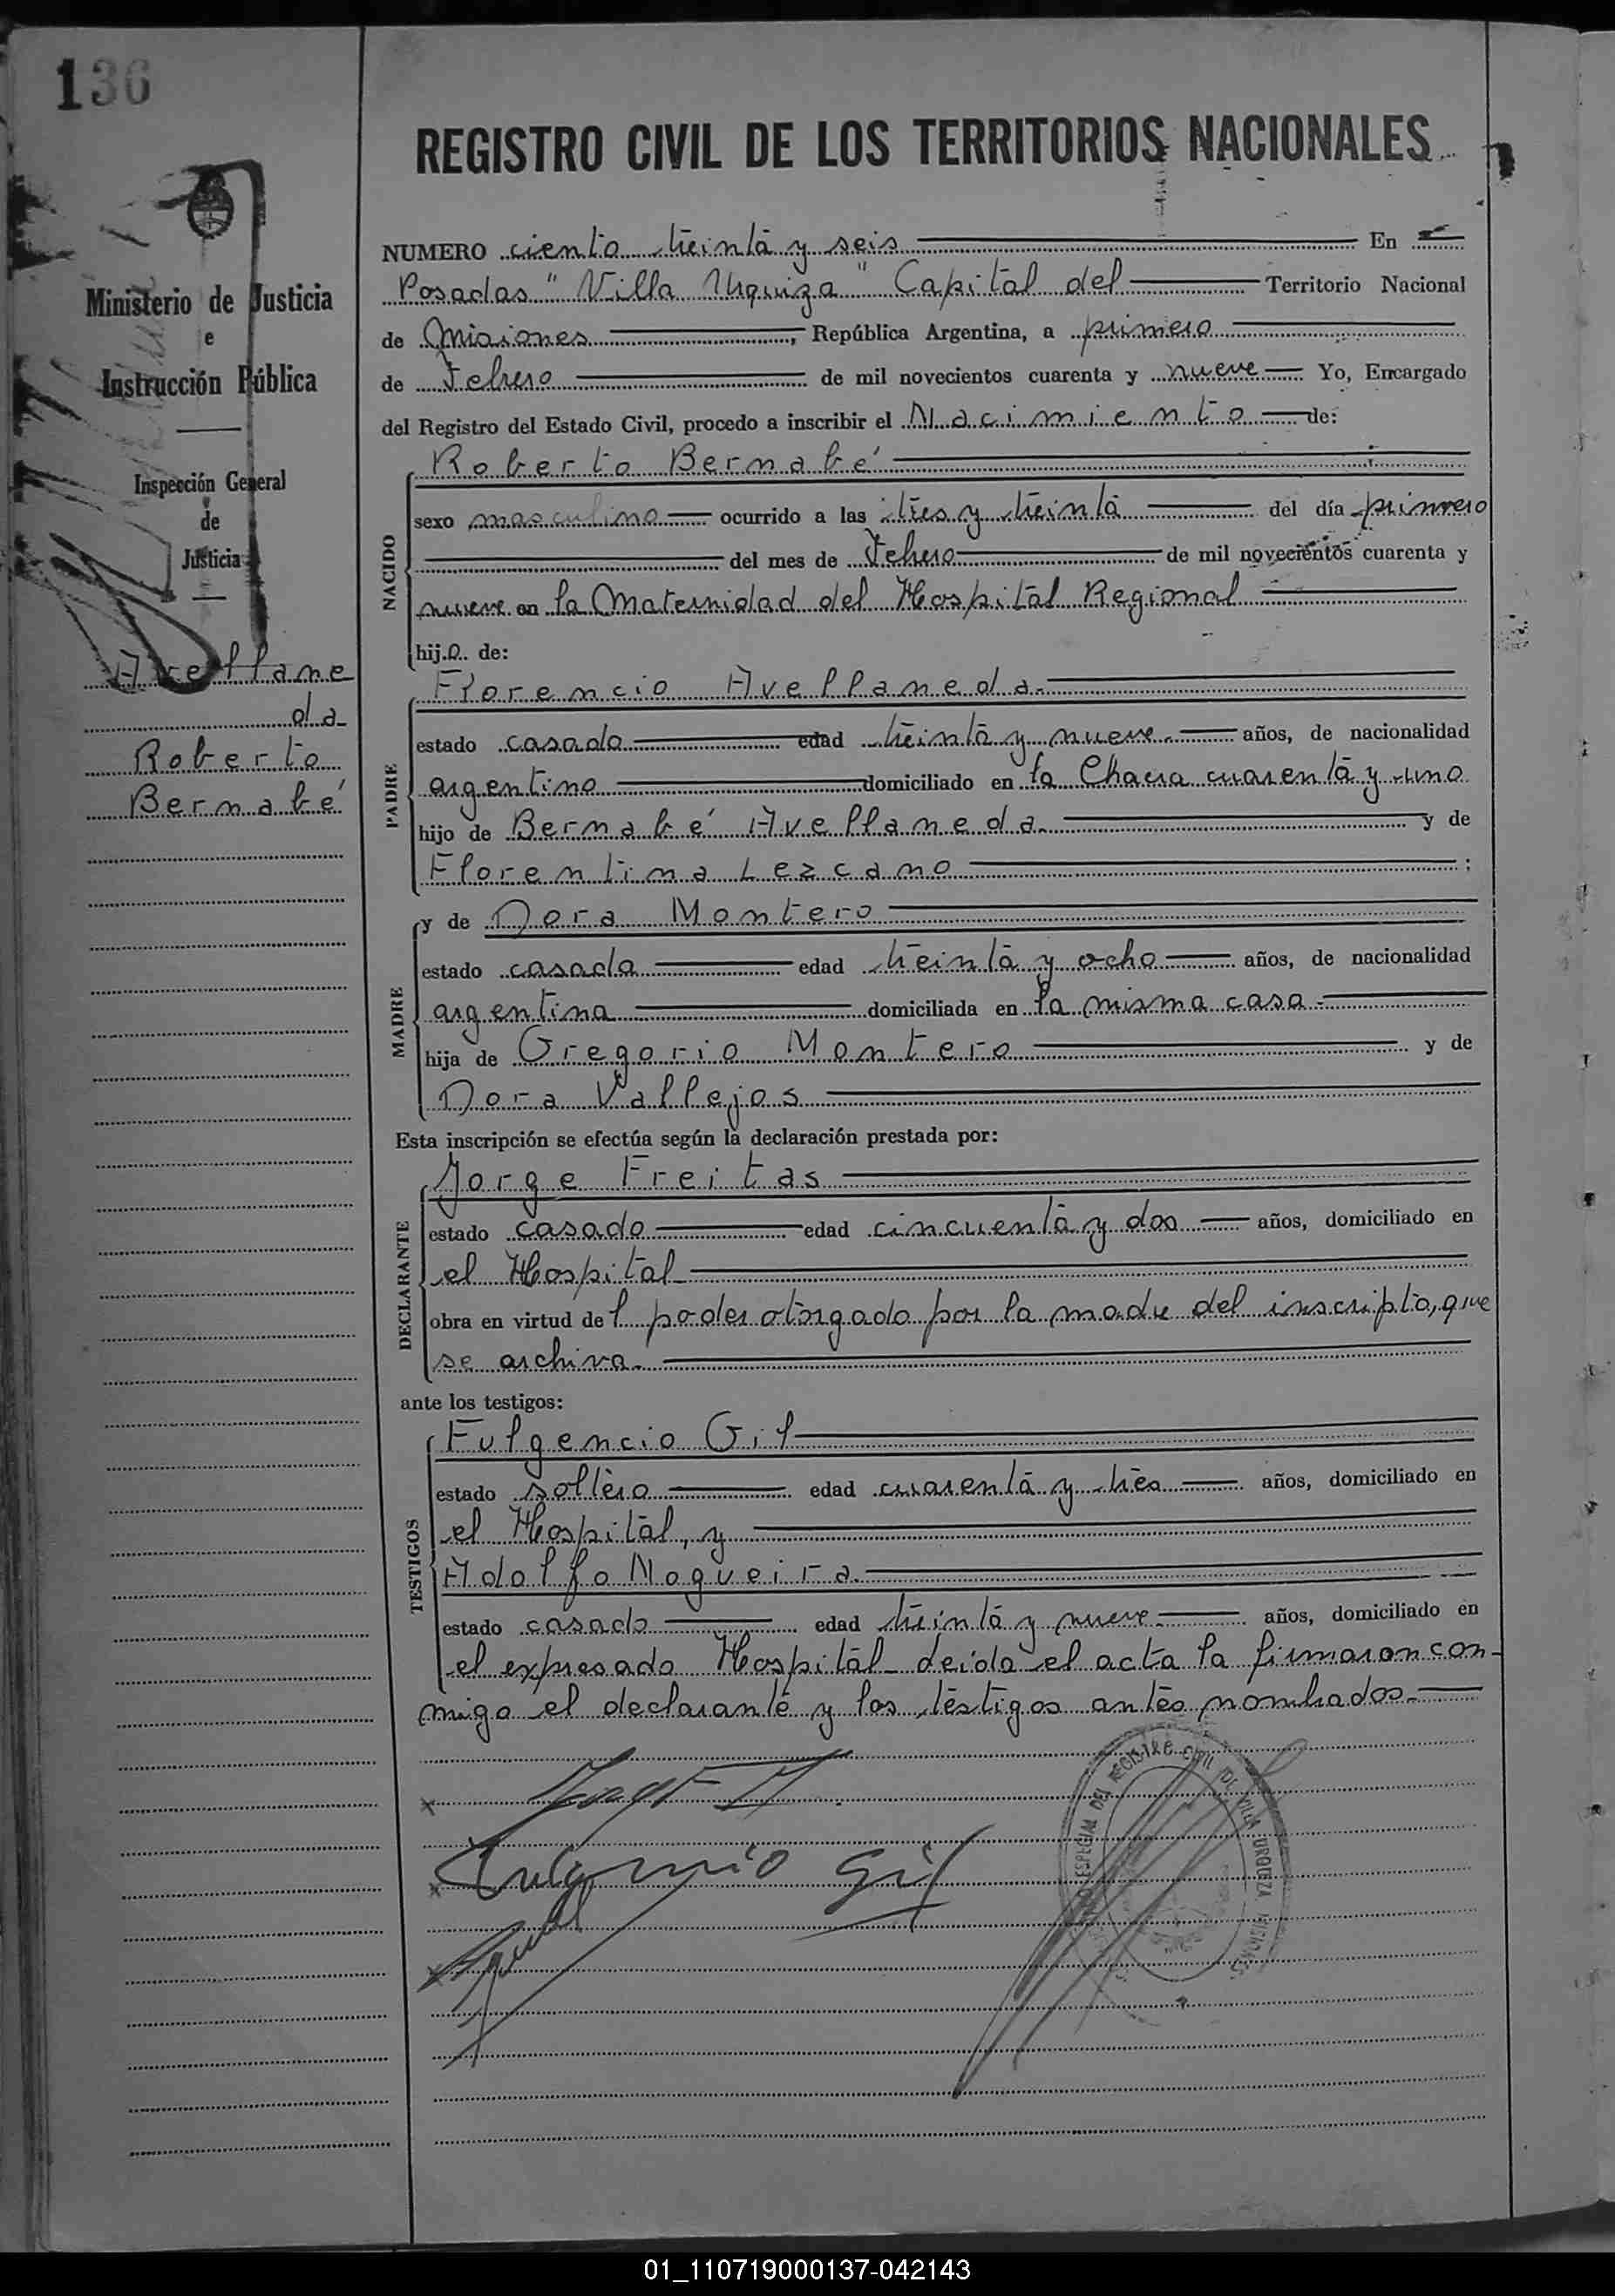 136
REGISTRO CIVIL DE LOS TERRITORIOS NACIONALES
Ministerio de Justicia
e
Instrucción Pública
Inspección General
de
Justicia
Avellane
da
Roberto
Bernabé
NUMERO ciento treinta y seis En
Posadas "Villa Urquiza" Capital del Territorio Nacional
de Misiones, República Argentina, a primero
de Febrero de mil novecientos cuarenta y nueve Yo, Encargado
del Registro del Estado Civil, procedo a inscribir el Nacimiento de:
NACIDO
Roberto Bernabé
sexo masculino ocurrido a las tres y treinta del día primero
del mes de Febrero de mil novecientos cuarenta y
nueve en la Maternidad del Hospital Regional
hijo de:
PADRE
Florencio Avellaneda.
estado casado edad treinta y nueve años, de nacionalidad
argentino domiciliado en la Chacra cuarenta y uno
hijo de Bernabé Avellaneda. y de
Florentina Lezcano ;
MADRE
y de Dora Montero
estado casada edad treinta y ocho años, de nacionalidad
argentina domiciliada en la misma casa.
hija de Gregorio Montero y de
Dora Vallejos
Esta inscripción se efectúa según la declaración prestada por:
DECLARANTE
Jorge Freitas
estado casado edad cincuenta y dos años, domiciliado en
el Hospital
obra en virtud del poder otorgado por la madre del inscripto, que
se archiva.
ante los testigos:
TESTIGOS
Fulgencio Gil
estado soltero edad cuarenta y tres años, domiciliado en
el Hospital, y
Adolfo Nogueira.
estado casado edad treinta y nueve años, domiciliado en
el expresado Hospital. Leida el acta la firmaron con-
migo el declarante y los testigos antes nombrados.
Fulgencio Gil
ESPECIAL DEL REGISTRO CIVIL DE VILLA URQUIZA MISIONES
01_110719000137-042143